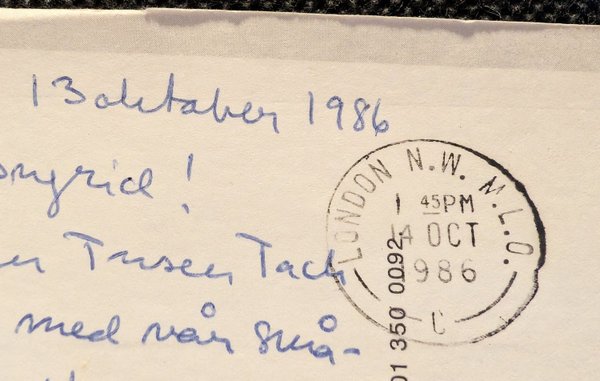 13 oktober 1986
ongrid!
Tusen Tack
med vår små-
LONDON N.W. M.L.O.
1 45PM
14 OCT
1986
C
01 350 0092